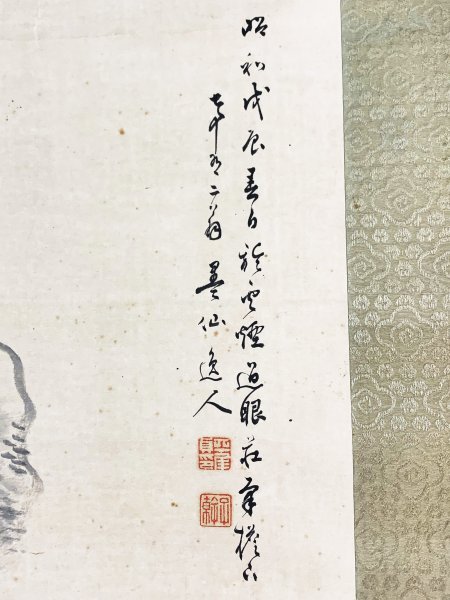 昭和戊辰春日於雲煙過眼荘南橋下
七十有二翁 墨仙逸人